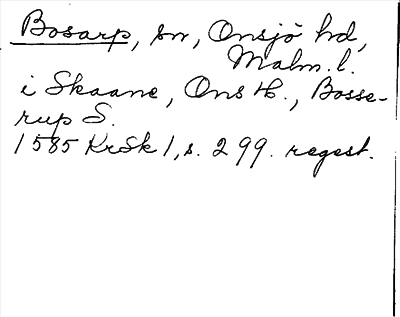 Bosarp, sn, Onsjö hd,
Malm. l.
i Skaane, Ons H., Bosse-
rup S.
1585 KrSk 1, s. 299. regest.